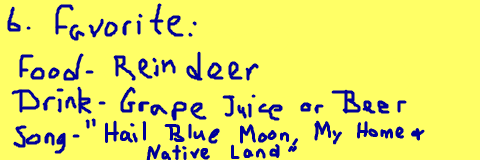 6. Favorite:
Food- Reindeer
Drink- Grape Juice or Beer
Song- "Hail Blue Moon, My Home &
Native Land"